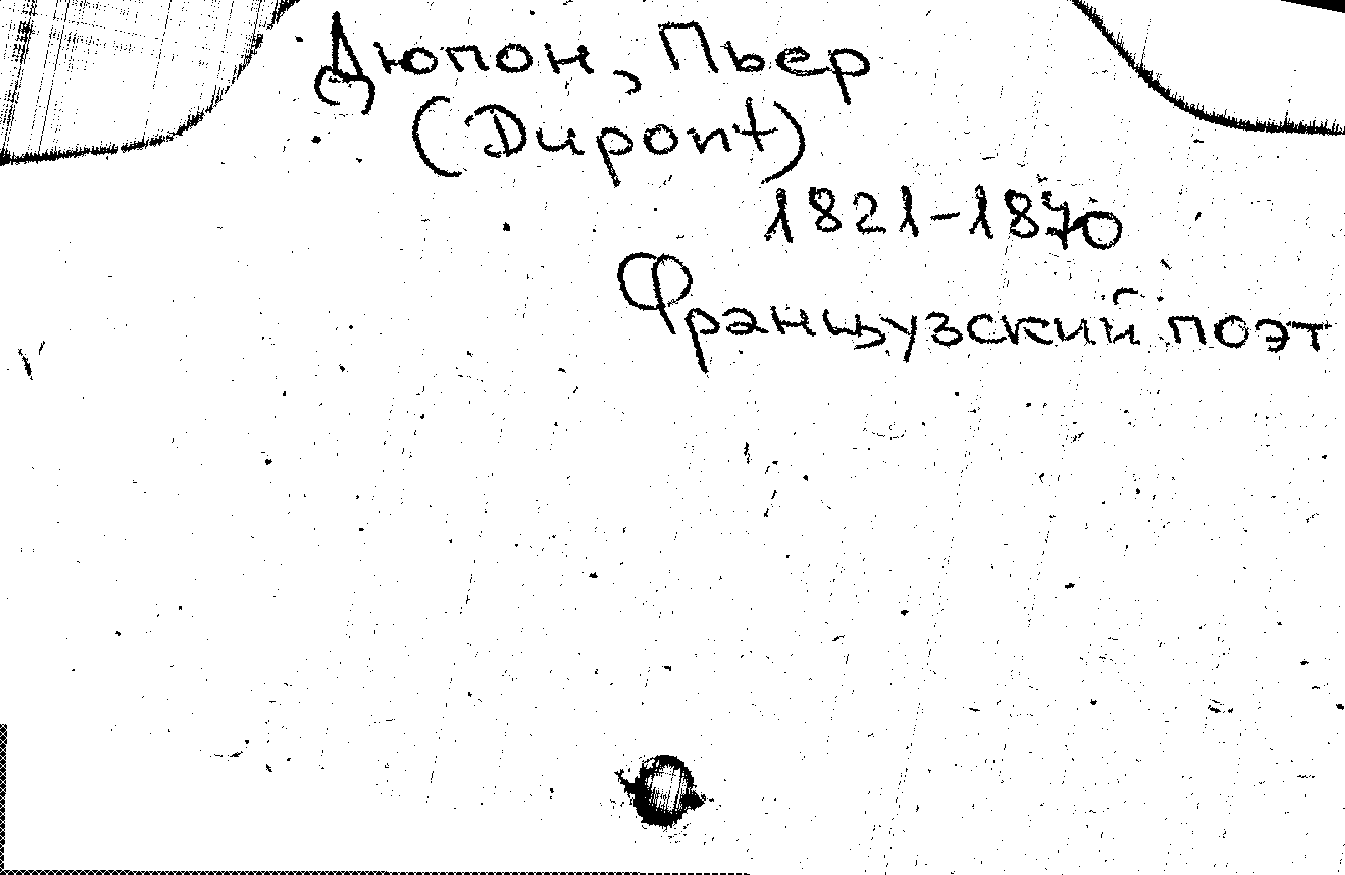 Дюпон, Пьер
(Dupont)
1821-1870
Французский поэт